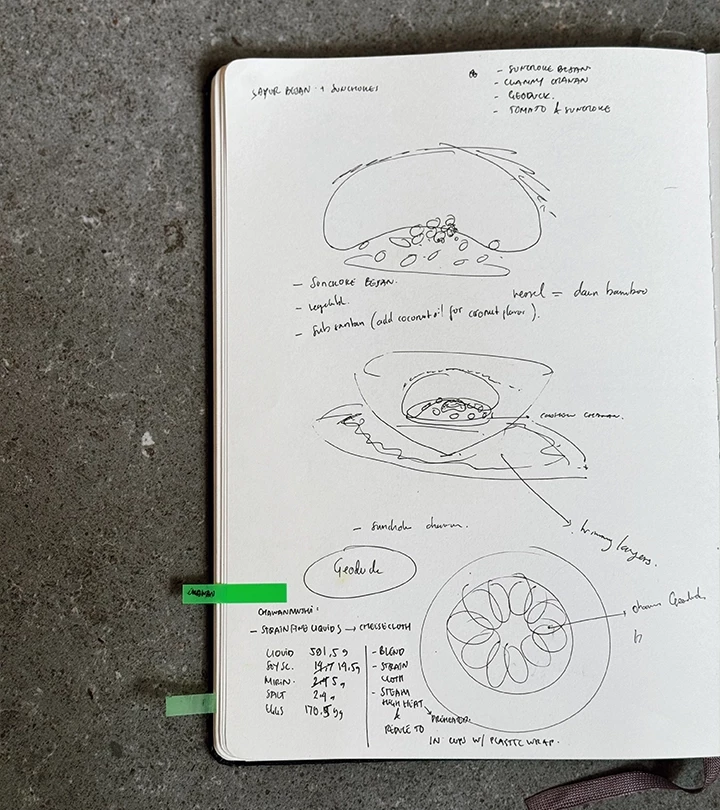 SAYUR BESAN + SUNCHOKES
- SUNCHOKE BESAN
- CLAMMY
- GEODUCK.
- TOMATO & SUNCHOKE
- SUNCHOKE BESAN.
- vegetable.
- Sub santan (add coconut oil for coconut flavor).
vessel = daun bamboo
- Sunchoke
Geoduck
CHAWANMUSHI:
- STRAIN FINE LIQUIDS → CHEESECLOTH
LIQUID 501,5g
SOY SC. 19,5g
MIRIN. 5g
SALT 2.9g
EGGS 170.5g
- BLEND
- STRAIN
CLOTH
- STEAM
HIGH HEAT
&
REDUCE TO
PREHEATED
IN CUPS W/ PLASTIC WRAP.